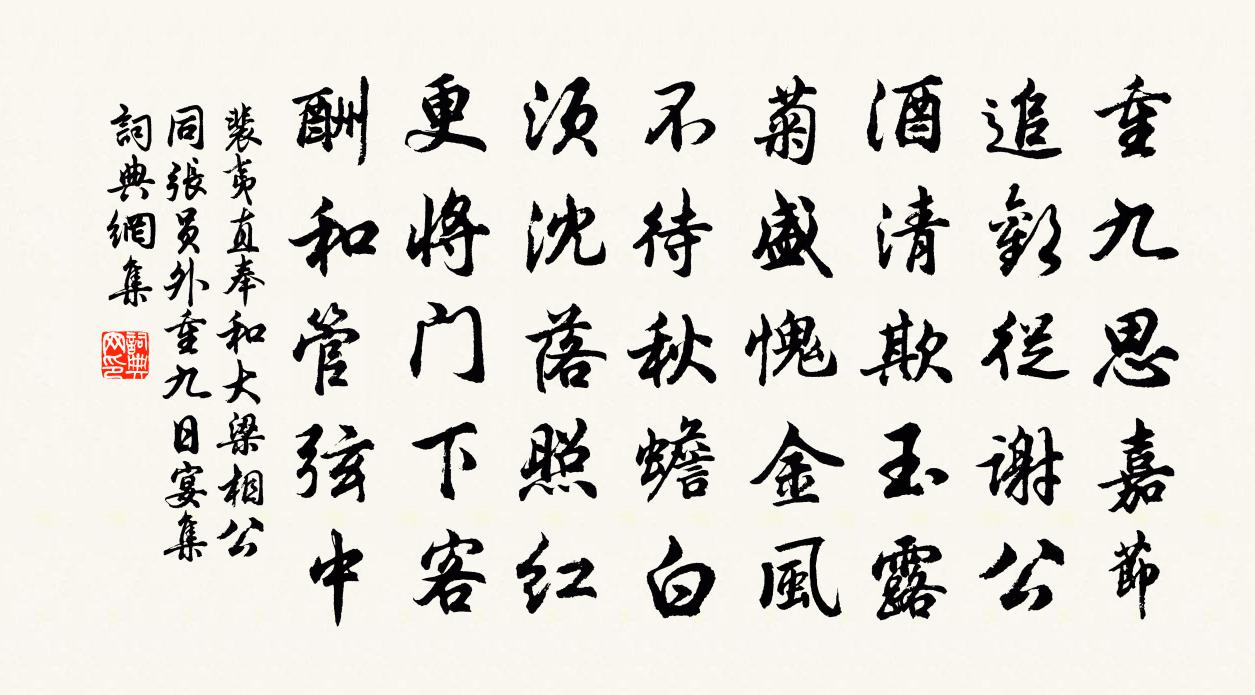 重九思嘉節
追歡從謝公
酒清欺玉露
菊盛愧金風
不待秋蟾白
須沈落照紅
更將门下客
酬和管弦中
裴夷直奉和大梁相公
同張員外重九日宴集
詞典網集
詞典网印